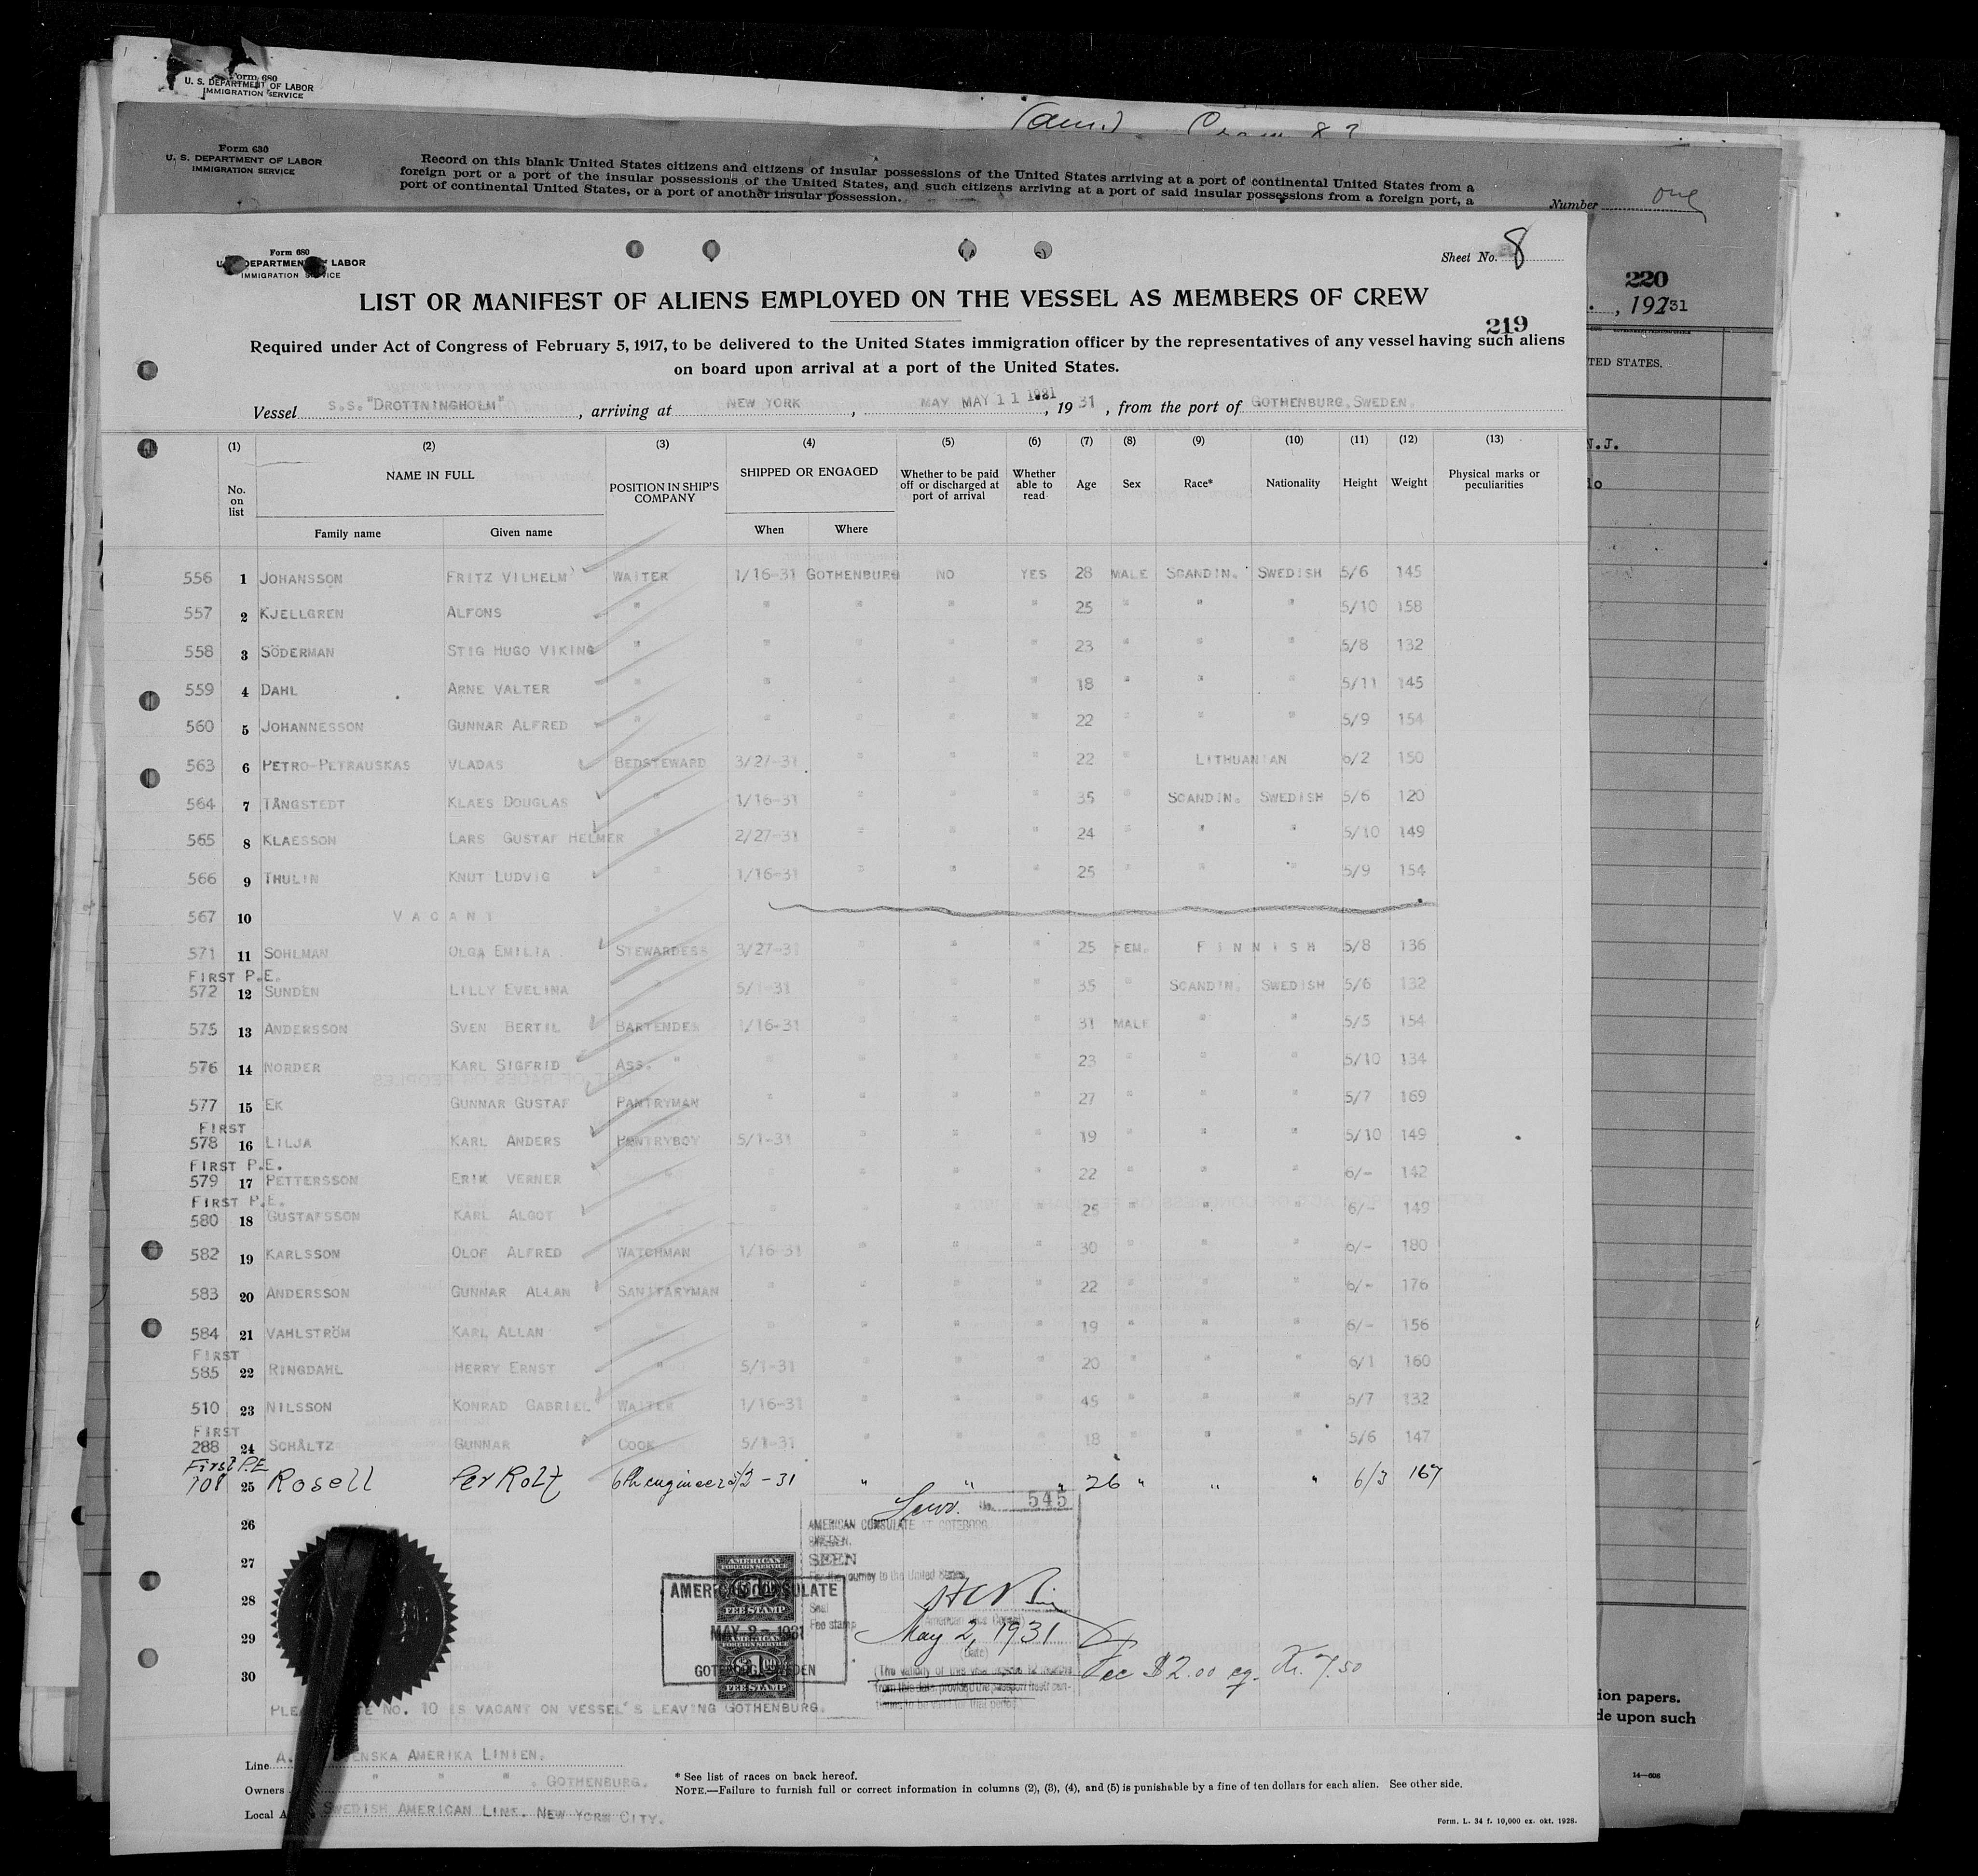 Form 680
U. S. DEPARTMENT OF LABOR
IMMIGRATION SERVICE
Form 630
U. S. DEPARTMENT OF LABOR
IMMIGRATION SERVICE
Record on this blank United States citizens and citizens of insular possessions of the United States arriving at a port of continental United States from a
foreign port or a port of the insular possessions of the United States, and such citizens arriving at a port of said insular possessions from a foreign port, a
port of continental United States, or a port of another insular possession.
Number one
220
, 19231
TED STATES.
N.J.
Form 680
DEPARTMENT OF LABOR
IMMIGRATION SERVICE
Sheet No. 8
LIST OR MANIFEST OF ALIENS EMPLOYED ON THE VESSEL AS MEMBERS OF CREW
219
Required under Act of Congress of February 5, 1917, to be delivered to the United States immigration officer by the representatives of any vessel having such aliens
on board upon arrival at a port of the United States.
Vessel S.S. "DROTTNINGHOLM", arriving at NEW YORK, MAY MAY 11 1931, 1931, from the port of GOTHENBURG, SWEDEN.
(1) (2) (3) (4) (5) (6) (7) (8) (9) (10) (11) (12) (13)
No. on list NAME IN FULL POSITION IN SHIP'S COMPANY SHIPPED OR ENGAGED Whether to be paid off or discharged at port of arrival Whether able to read Age Sex Race* Nationality Height Weight Physical marks or peculiarities
Family name Given name When Where
556 1 JOHANSSON FRITZ VILHELM WAITER 1/16-31 GOTHENBURG NO YES 28 MALE SCANDIN. SWEDISH 5/6 145
557 2 KJELLGREN ALFONS " " " " " 25 " " " 5/10 158
558 3 SÖDERMAN STIG HUGO VIKING " " " " " 23 " " " 5/8 132
559 4 DAHL ARNE VALTER " " " " " 18 " " " 5/11 145
560 5 JOHANNESSON GUNNAR ALFRED " " " " " 22 " " " 5/9 154
563 6 PETRO-PETRAUSKAS VLADAS BEDSTEWARD 3/27-31 " " " 22 " LITHUANIAN 6/2 150
564 7 TÅNGSTEDT KLAES DOUGLAS " 1/16-31 " " " 35 " SCANDIN. SWEDISH 5/6 120
565 8 KLAESSON LARS GUSTAF HELMER " 2/27-31 " " " 24 " " " 5/10 149
566 9 THULIN KNUT LUDVIG " 1/16-31 " " " 25 " " " 5/9 154
567 10 VACANT "
571 11 SOHLMAN OLGA EMILIA STEWARDESS 3/27-31 " " " 25 FEM. FINNISH 5/8 136
FIRST P.E.
572 12 SUNDEN LILLY EVELINA " 5/1-31 " " " 35 " SCANDIN. SWEDISH 5/6 132
575 13 ANDERSSON SVEN BERTIL BARTENDER 1/16-31 " " " 31 MALE " " 5/5 154
576 14 NORDER KARL SIGFRID ASS. " " " " " 23 " " " 5/10 134
577 15 EK GUNNAR GUSTAF PANTRYMAN " " " " 27 " " " 5/7 169
FIRST
578 16 LILJA KARL ANDERS PANTRYBOY 5/1-31 " " " 19 " " " 5/10 149
FIRST P.E.
579 17 PETTERSSON ERIK VERNER " " " " " 22 " " " 6/- 142
FIRST P.E.
580 18 GUSTAFSSON KARL ALGOT " " " " " 25 " " " 6/- 149
582 19 KARLSSON OLOF ALFRED WATCHMAN 1/16-31 " " " 30 " " " 6/- 180
583 20 ANDERSSON GUNNAR ALLAN SANITARYMAN " " " " 22 " " " 6/- 176
584 21 VAHLSTRÖM KARL ALLAN " " " " " 19 " " " 6/- 156
FIRST
585 22 RINGDAHL HERRY ERNST " 5/1-31 " " " 20 " " " 6/1 160
510 23 NILSSON KONRAD GABRIEL WAITER 1/16-31 " " " 45 " " " 5/7 132
FIRST
288 24 SCHÅLTZ GUNNAR COOK 5/1-31 " " " 18 " " " 5/6 147
First P.E.
708 25 Rosell Per Rolf 6th engineer 5/2-31 " " " 26 " " " 6/3 167
26
27
28
29
30
No. 545
AMERICAN CONSULATE AT GOTEBORG,
SWEDEN.
SEEN
For the journey to the United States
Seal
Fee stamp
(American Vice Consul)
May 2, 1931
(Date)
(The validity of this visa expires 12 months
from this date provided the passport itself con-
tinues to be valid for that period)
Fee $2.00 eq. Kr. 7.50
AMERICAN
FOREIGN SERVICE
FEE STAMP
AMERICAN CONSULATE
MAY 2 - 1931
GOTEBORG, SWEDEN
AMERICAN
FOREIGN SERVICE
$1.00
FEE STAMP
NO. 10 IS VACANT ON VESSEL'S LEAVING GOTHENBURG.
Line A. SVENSKA AMERIKA LINIEN.
Owners " " " , GOTHENBURG.
Local A SWEDISH AMERICAN LINE. NEW YORK CITY.
* See list of races on back hereof.
NOTE.—Failure to furnish full or correct information in columns (2), (3), (4), and (5) is punishable by a fine of ten dollars for each alien. See other side.
Form. L. 34 f. 10,000 ex. okt. 1928.
ion papers.
de upon such
14—606